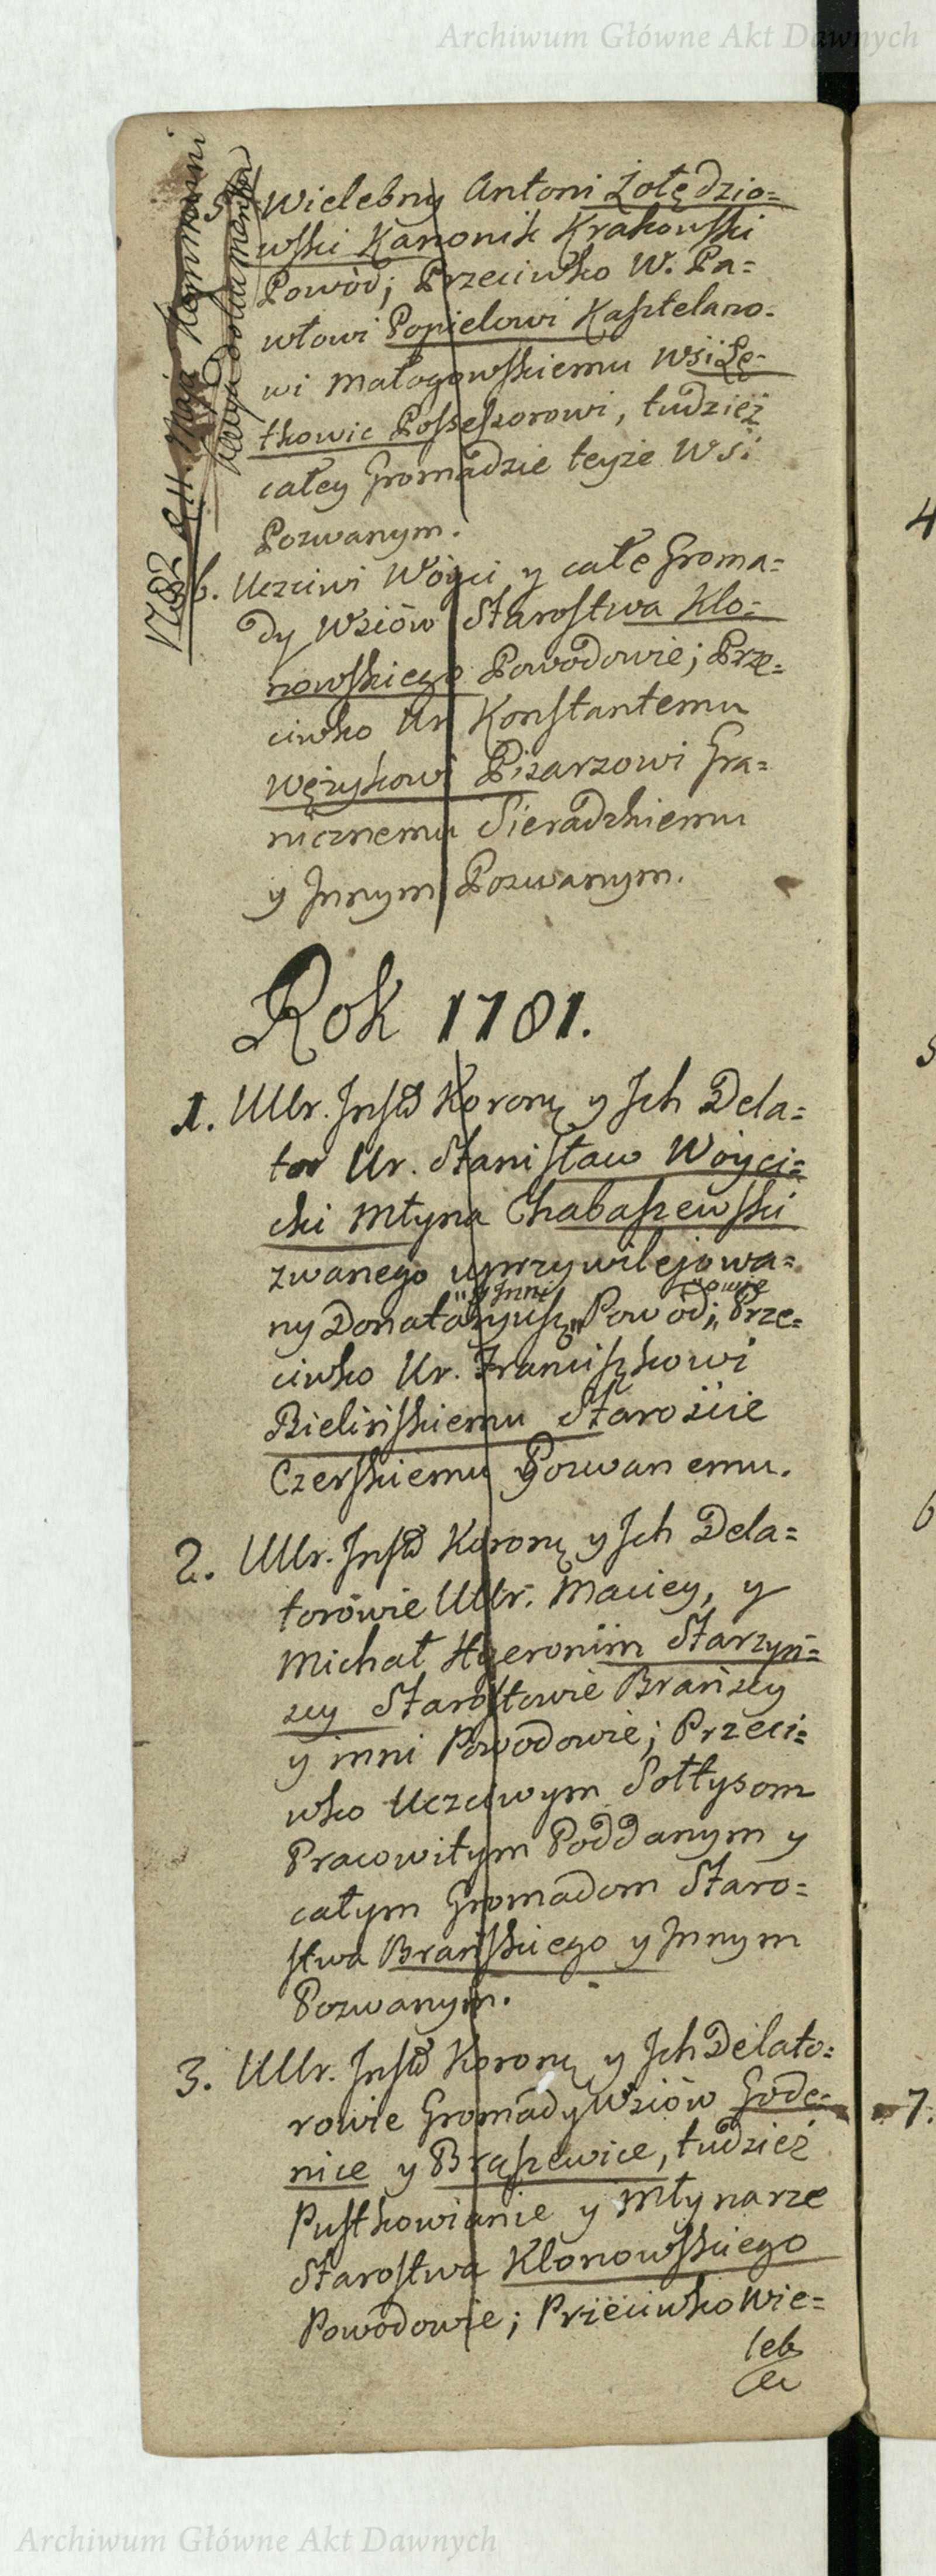 Archiwum Główne Akt Dawnych
5. Wielebny Antoni Żołędzio=
wski Kanonik Krakowski
Powód; Przeciwko W. Pa=
włowi Popielowi Kasztelano=
wi Małogowskiemu Wsi Łę=
tkowic Possessorowi, tudzież
całey Gromadzie teyże Wsi
Pozwanym.
1782 d. 11. Maja
6. Uczciwi Wóyci y całe Groma=
dy Wsiów Starostwa Kło=
nowskiego Powodowie; Prze=
ciwko Ur. Konstantemu
Wężykowi Pisarzowi Gra=
nicznemu Sieradzkiemu
y Innym Pozwanym.
Rok 1781.
1. UUr. Insty Koronę y Ich Dela=
tor Ur. Stanisław Woyci=
cki Młyna Chabaszewski
zwanego uprzywilejowa=
ny Donataryusz „y Inni„ Powód„owie„; Prze=
ciwko Ur. Franciszkowi
Bielińskiemu Starościie
Czerskiemu Pozwanemu.
2. UUr. Insty Koronę y Ich Dela=
torowie UUr. Maciey, y
Michał Hyeronim Starzyń=
scy Starostowie Brańscy
y inni Powodowie; Przeci=
wko Uczciwym Sołtysom
Pracowitym Poddanym y
całym Gromadom Staro=
stwa Brańskiego y Innym
Pozwanym.
3. UUr. Insty Koronę y Ich Delato=
rowie Gromady Wsiów Gode=
nice y Brąszewice, tudzież
Pustkowianie y Młynarze
Starostwa Klonowskiego
Powodowie; Przeciwko Wie=
leb
4
5
6
7.
Archiwum Główne Akt Dawnych